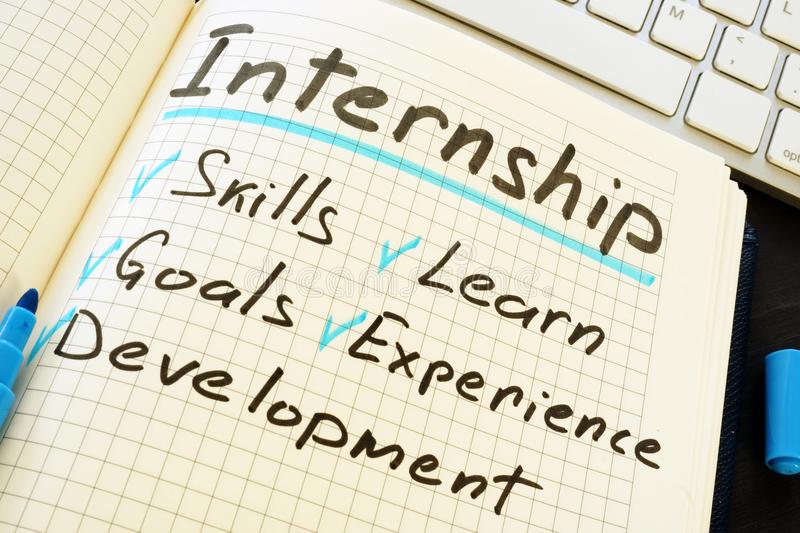 Internship
Skills Learn
Goals Experience
Development
M
option